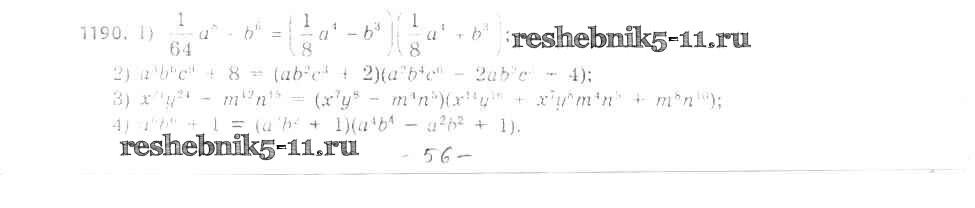 1190. 1) 1/64 a⁸ - b⁶ = (1/8 a⁴ - b³)(1/8 a⁴ + b³); reshebnik5-11.ru
2) a³b⁶c⁹ + 8 = (ab²c³ + 2)(a²b⁴c⁶ - 2ab²c³ + 4);
3) x²¹y²⁴ - m¹²n¹⁵ = (x⁷y⁸ - m⁴n⁵)(x¹⁴y¹⁶ + x⁷y⁸m⁴n⁵ + m⁸n¹⁰);
4) a⁶b⁶ + 1 = (a²b² + 1)(a⁴b⁴ - a²b² + 1).
reshebnik5-11.ru - 56 -